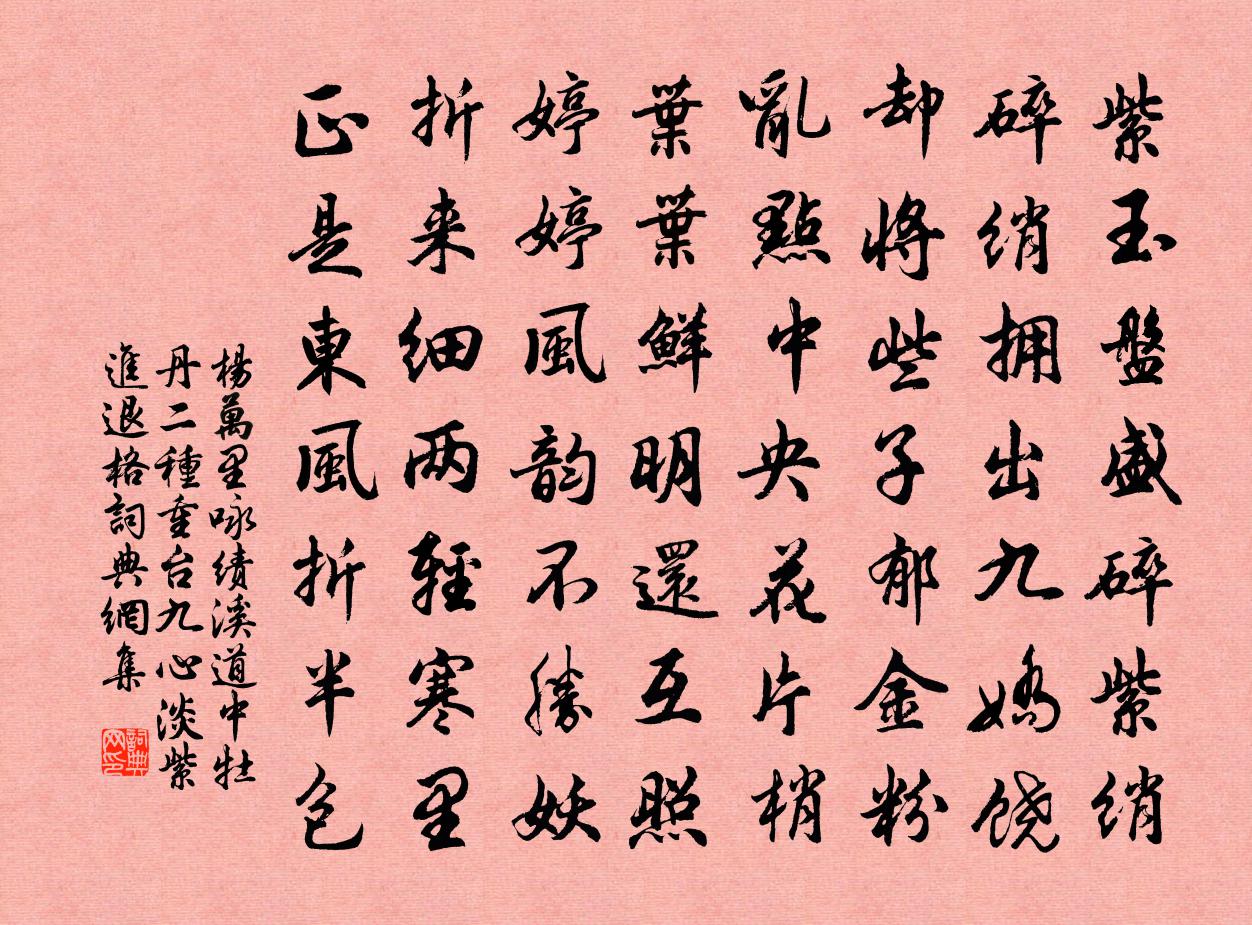 紫玉盤盛碎紫绡
碎绡拥出九娇饶
却將些子郁金粉
亂點中央花片梢
葉葉鮮明還互照
婷婷風韵不勝妖
折来细两輕寒里
正是東風折半包
楊萬里咏績溪道中牡
丹二種重台九心淡紫
進退格詞典網集
詞典
网印